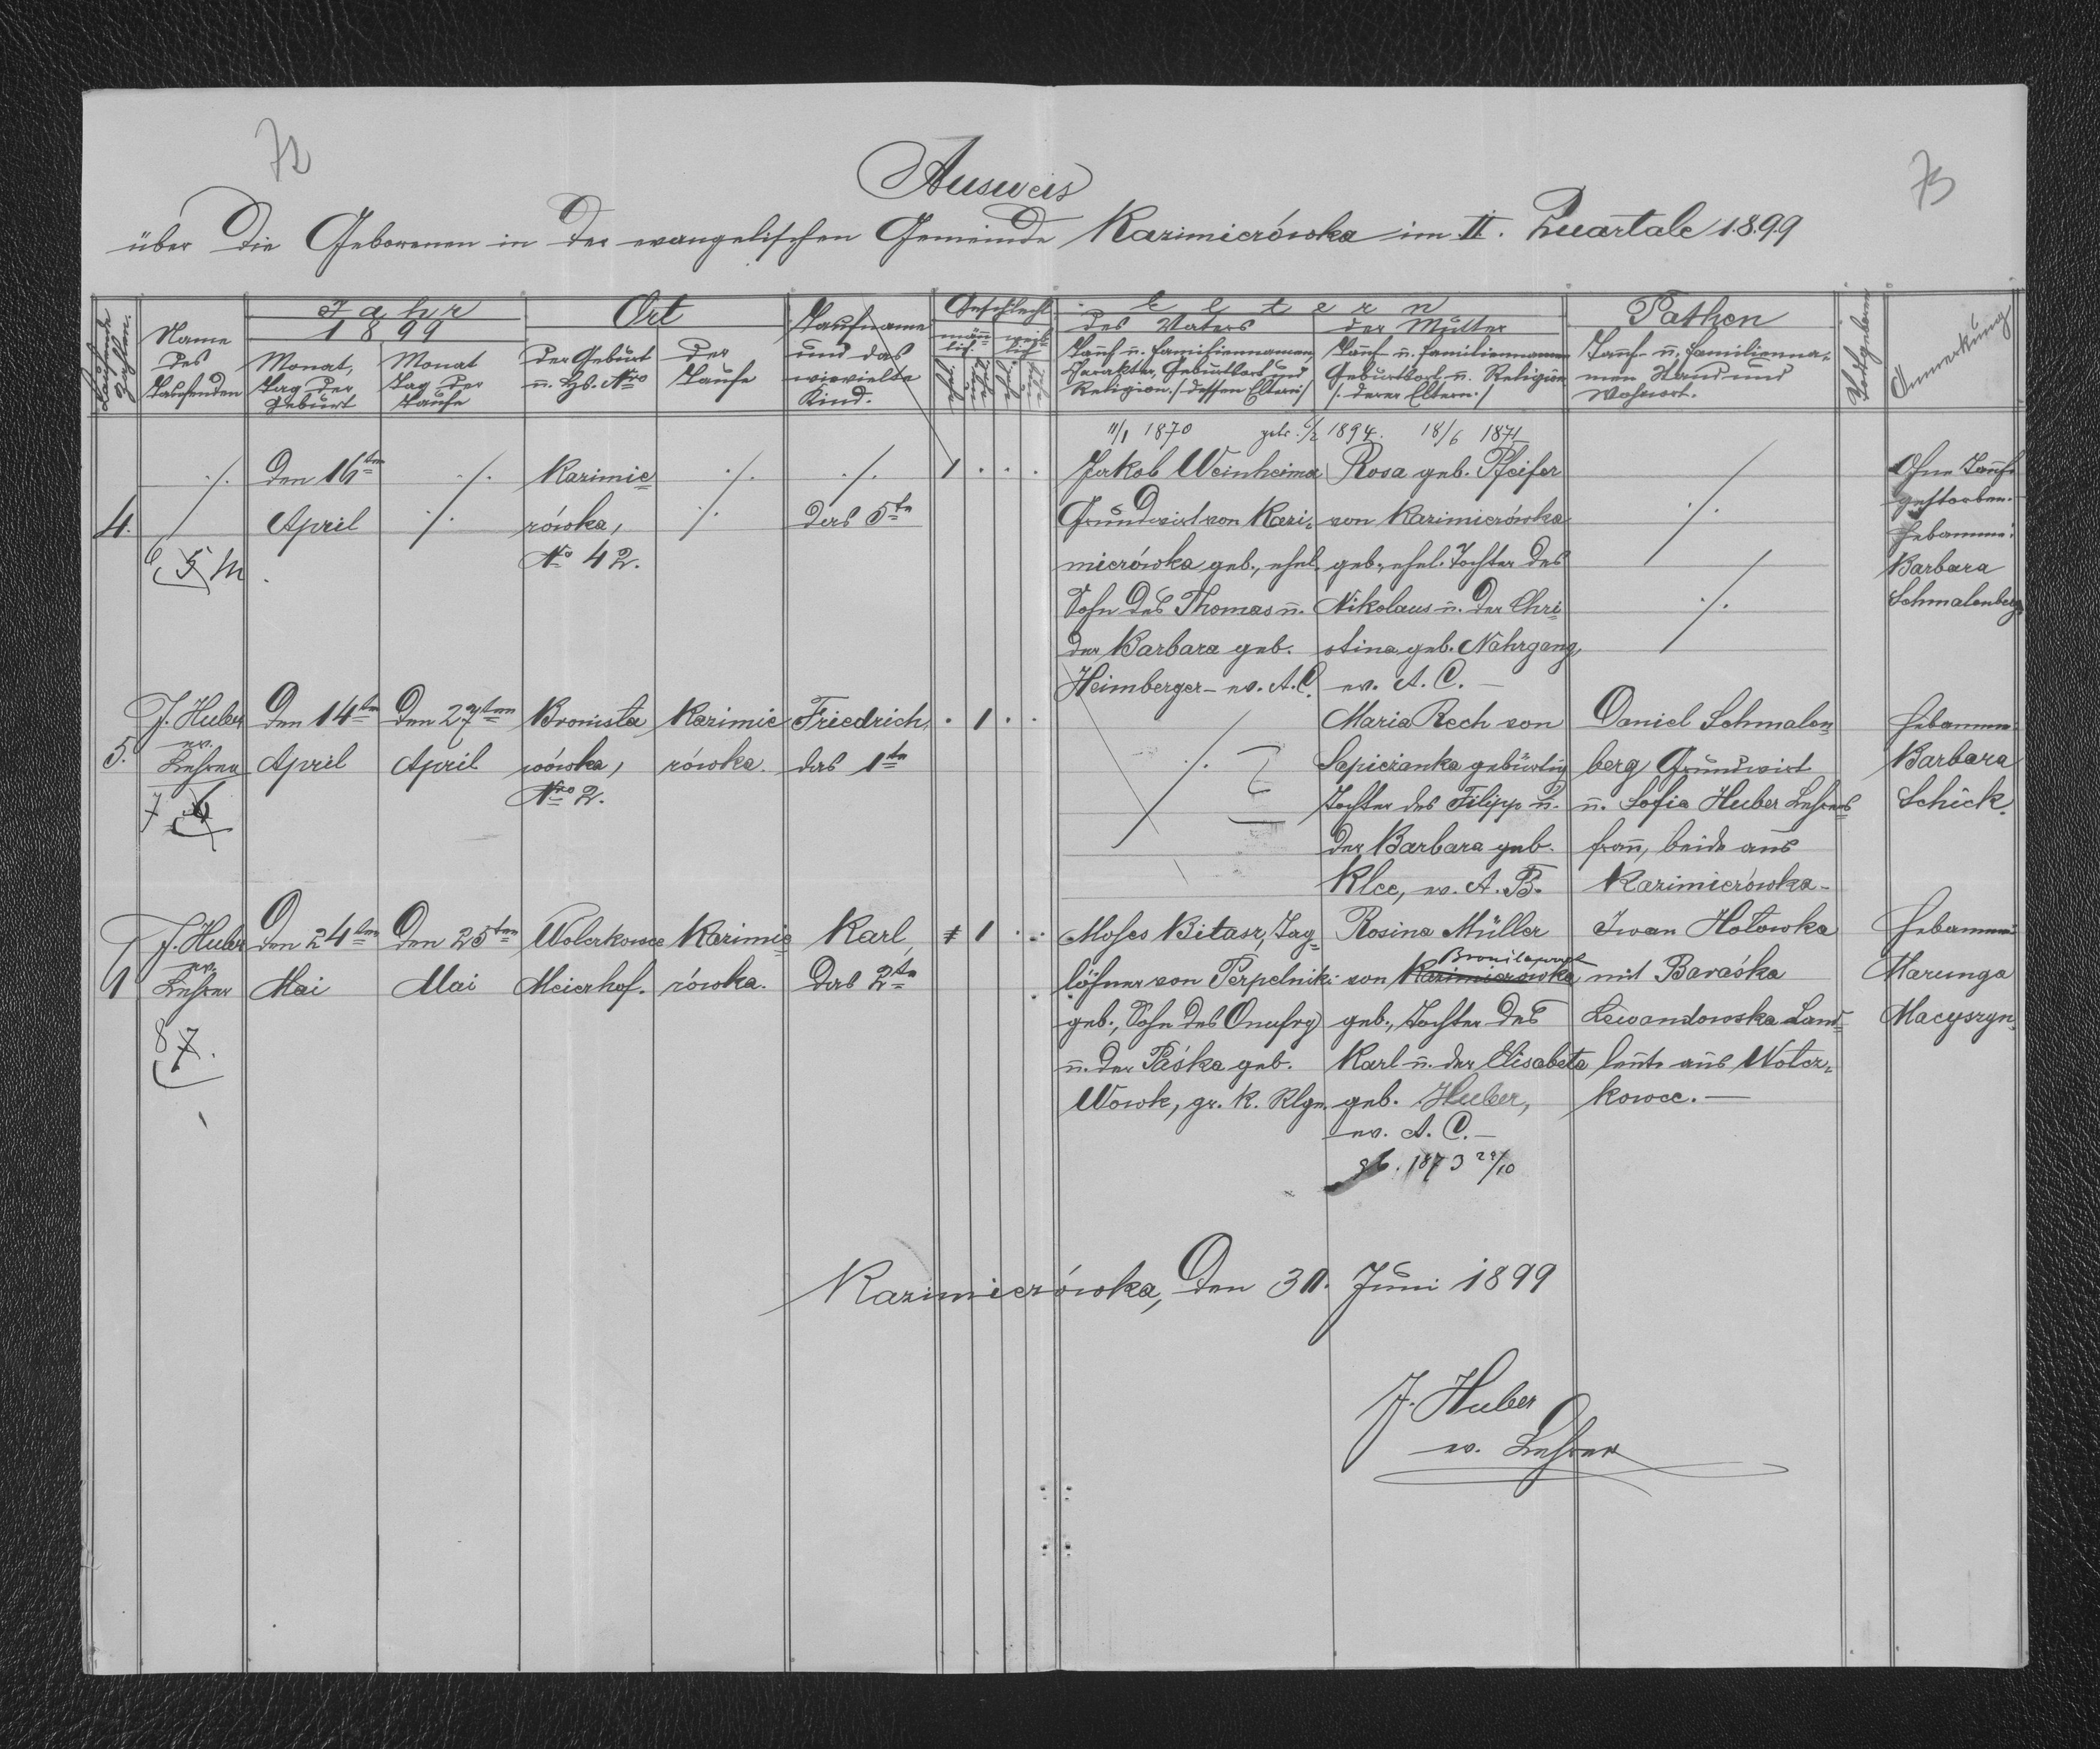 72
73
Ausweis
über die Geborenen in der evangelischen Gemeinde Kazimierówka im II. Quartale 1899
Laufende Zahlen.
Name des Taufenden
Jahr 1899
Monat, Tag der Geburt
Monat Tag der Taufe
Ort
der Geburt u. Hs. Nro
der Taufe
Taufname und das wievielte Kind.
Geschlecht
männlich
weiblich
Eltern
des Vaters
Tauf u. Familiennamen, Karakter, Geburtsort und Religion ./ dessen Eltern /
der Mutter
Tauf- u. Familiennamen Geburtsort u. Religion /. deren Eltern ./
Pathen
Tauf- u. Familiennamen Stand und Wohnort.
Anmerkung
11/1 1870 1894. 18/6 1871
./. den 16ten ./. Kazimie ./. ./. 1 . . . Jakob Weinheimer Rosa geb. Pfeifer Ohne Taufe
4. April ./. rówka, ./. das 5te Grundwirt von Kazi- von Kazimierówka ./. gestorben.
6 5 No 42. mierówka geb., ehel. geb., ehel. Tochter des Hebamme:
Sohn des Thomas u. Nikolaus u. der Chri- ./. Barbara
der Barbara geb. stina geb. Nahrgang, Schmalenberg
Heimberger - ev. A.C. ev. A. C. -
J. Huber den 14ten den 27ten Bronisła Kazimie Friedrich, . 1 . . Maria Rech von Daniel Schmalen- Hebamme:
5. ev. Lehrer April April wówka, rówka. das 1te ./. Sapieżanka gebürtig berg Grundwirt Barbara
7 Nro 2. Tochter des Filipp u. u. Sofia Huber Lehrers- Schick.
der Barbara geb. frau, beide aus
Klee, ev. A. B. Kazimierówka -
J. Huber den 24ten den 25ten Wolczkowce Kazimie Karl, 1 . . Moses Bitasz, Tag- Rosina Müller Iwan Hołowka Hebamme:
1 ev. Lehrer Mai Mai Meierhof. rówka. das 2te löhner von Perpelniki von Kazimierówka mit Baraśka Marunga
8 7. geb., Sohn des Onufry geb., Tochter des Lewandowska Land- Macyszyn.
u. der Paśka geb. Karl u. der Elisabeta leute aus Wołcz-
Wowk, gr. k. Rlgn. geb. Huber, kowce. -
ev. A. C. -
gb. 1873 29/10
Kazimierówka, den 30. Juni 1899
J. Huber
ev. Lehrer